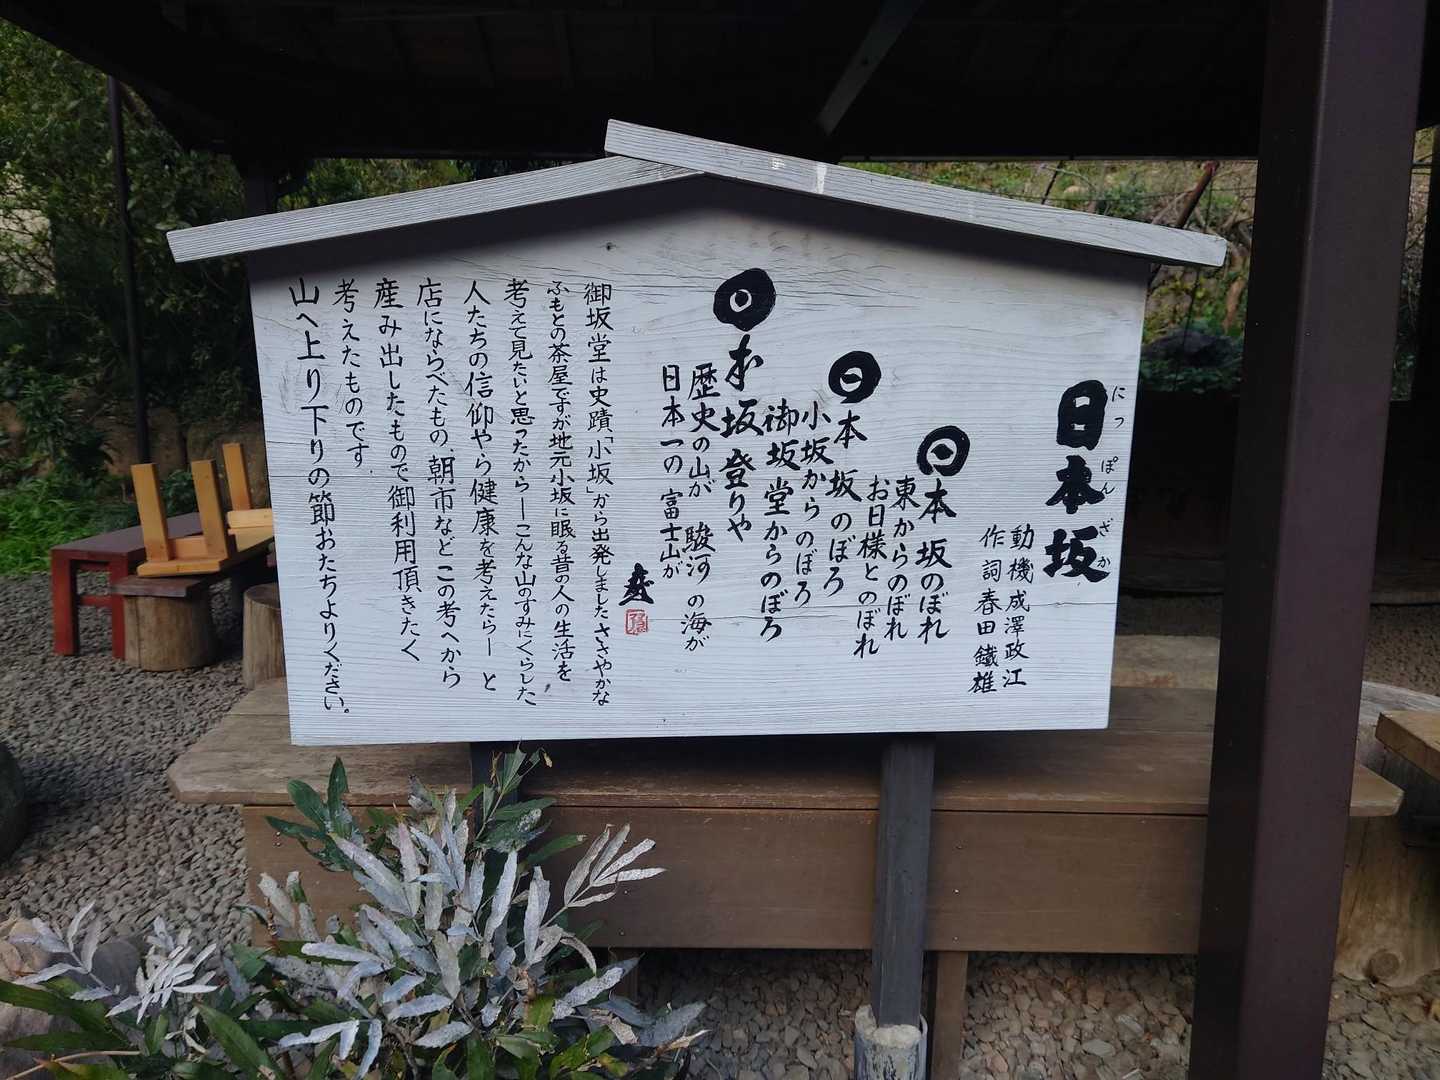 日本坂
にっぽんざか
動機 成澤政江
作詞 春田鐵雄
日本坂のぼれ
東からのぼれ
お日様とのぼれ
日本坂のぼろ
小坂からのぼろ
御坂堂からのぼろ
日本坂登りや
歴史の山が 駿河の海が
日本一の富士山が
御坂堂は史蹟「小坂」から出発しました ささやかな
ふもとの茶屋ですが地元小坂に眠る昔の人の生活を
考えて見たいと思ったから―こんな山のすみにくらした
人たちの信仰やら健康を考えたら― と
店にならべたもの、朝市など この考へから
産み出したもので御利用頂きたく
考えたものです
山へ上り下りの節おたちよりください。